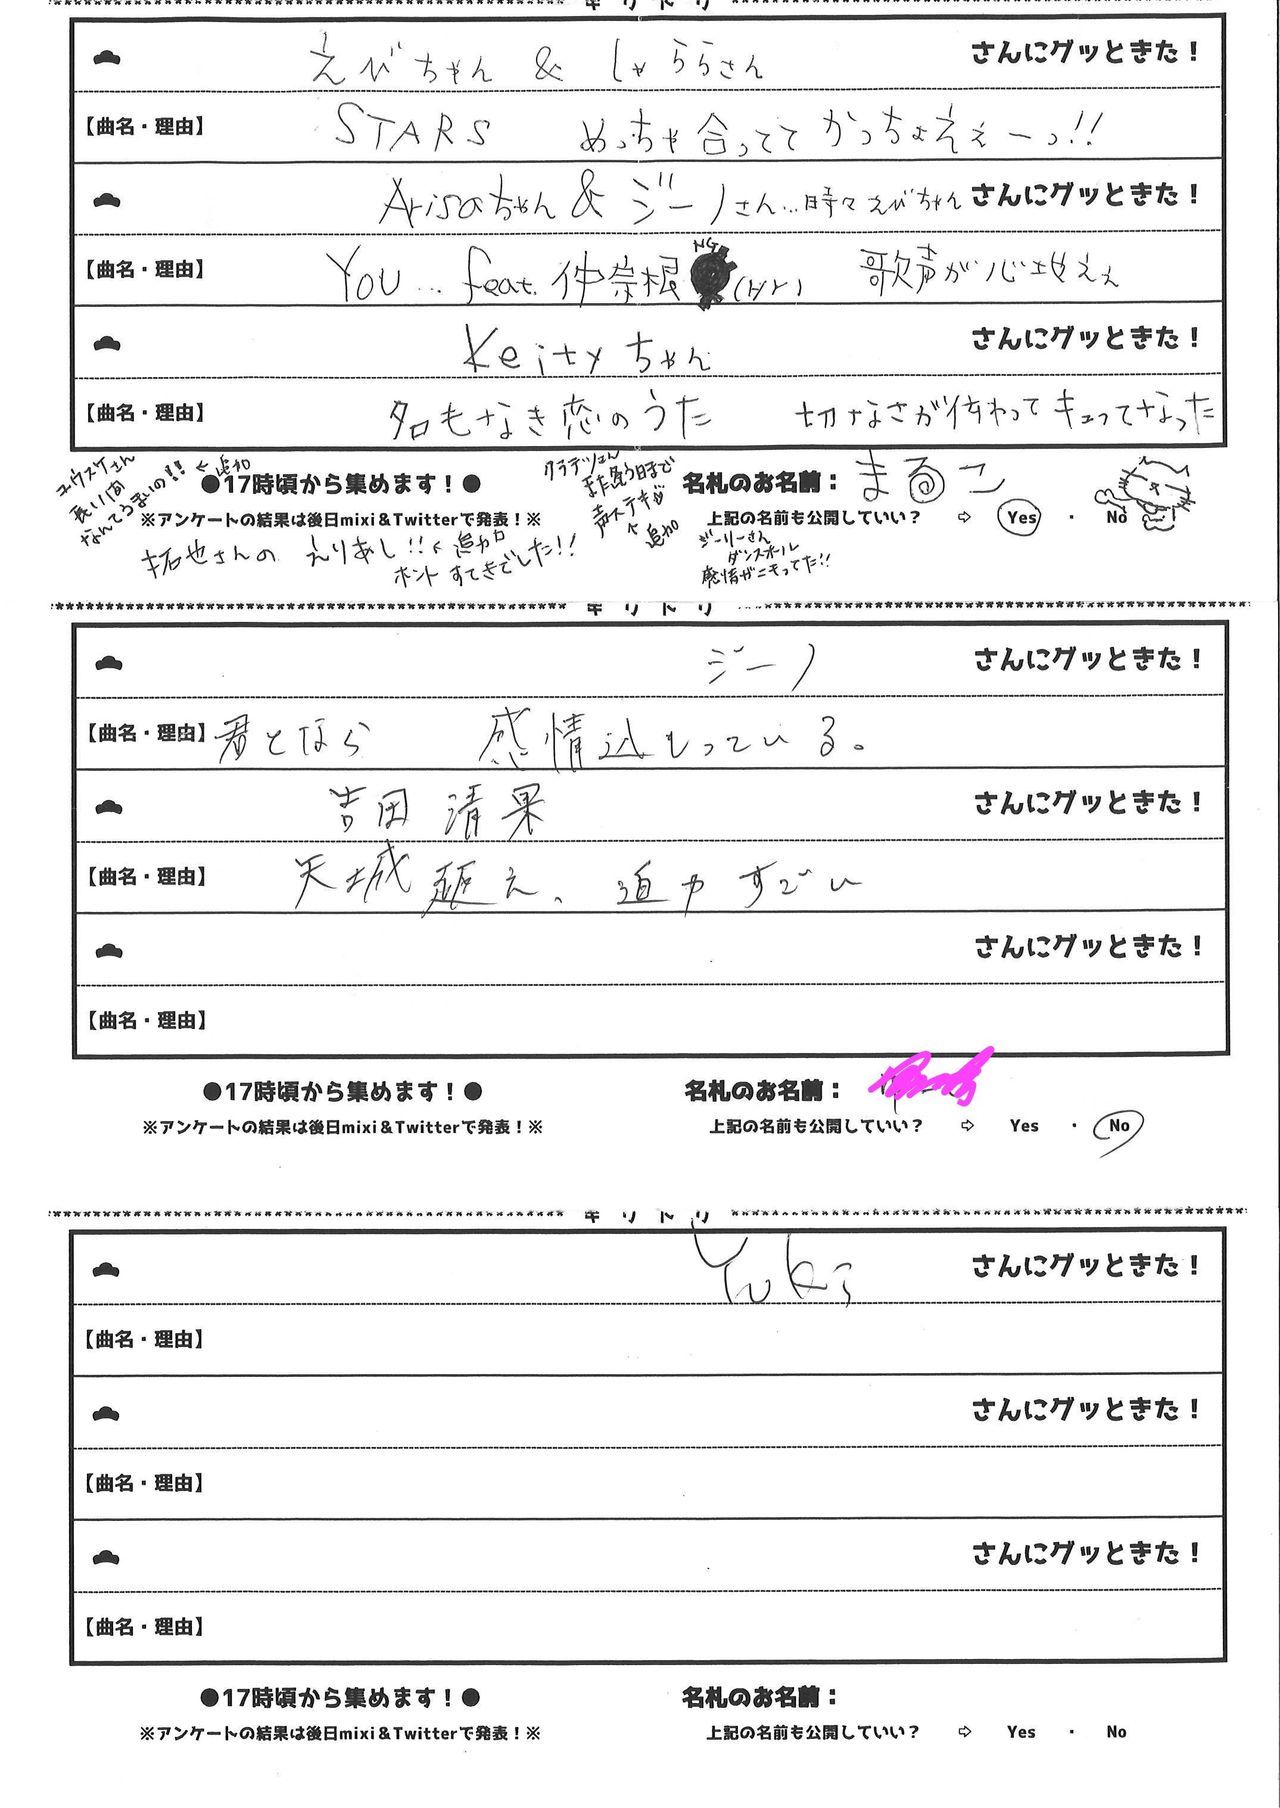 キリトリ
えびちゃん & しゃららさん さんにグッときた！
【曲名・理由】 STARS めっちゃ合ってて かっちょええーっ!!
Arisaちゃん & ジーノさん…時々えびちゃん さんにグッときた！
【曲名・理由】 YOU… feat. 仲宗根 NG (HY) 歌声が心地ええ
Keityちゃん さんにグッときた！
【曲名・理由】 名もなき恋のうた 切なさが伝わってキュってなった
ユウスケさん
長い間
なんてうまいの!! ← 追加
●17時頃から集めます！●
クラテツさん
また逢う日まで
声ステキ
← 追加
名札のお名前： まるこ
※アンケートの結果は後日mixi＆Twitterで発表！※
上記の名前も公開していい？ ⇨ Yes ・ No
拓也さんの えりあし!! ← 追加
ホント すてきでした!!
ジーリーさん
ダンスホール
感情がこもってた!!
キリトリ
ジーノ さんにグッときた！
【曲名・理由】 君となら 感情込もっている。
吉田 清果 さんにグッときた！
【曲名・理由】 天城越え、迫力すごい
さんにグッときた！
【曲名・理由】
●17時頃から集めます！● 名札のお名前：
※アンケートの結果は後日mixi＆Twitterで発表！※ 上記の名前も公開していい？ ⇨ Yes ・ No
キリトリ
Yuki さんにグッときた！
【曲名・理由】
さんにグッときた！
【曲名・理由】
さんにグッときた！
【曲名・理由】
●17時頃から集めます！● 名札のお名前：
※アンケートの結果は後日mixi＆Twitterで発表！※ 上記の名前も公開していい？ ⇨ Yes ・ No